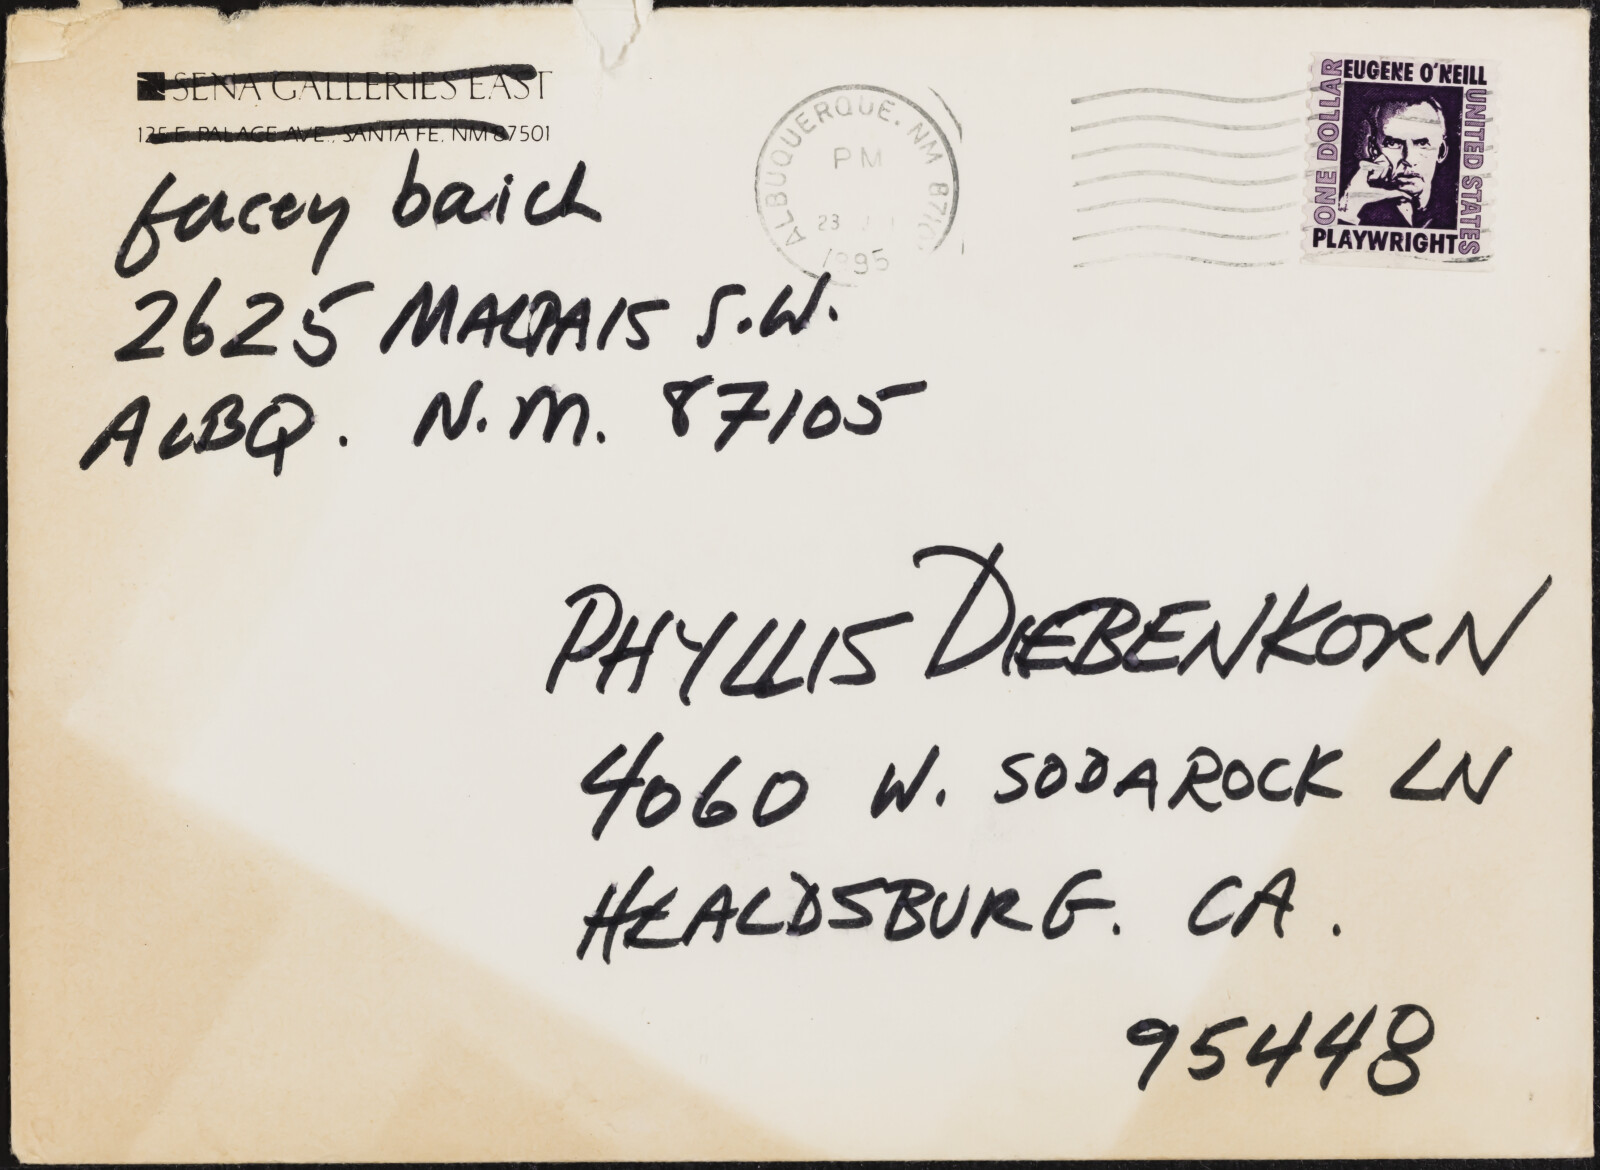 SENA GALLERIES EAST
125 E. PALACE AVE., SANTA FE, NM 87501
facey baich
2625 MALPAIS S.W.
ALBQ. N.M. 87105
ALBUQUERQUE, NM
PM
23
1995
EUGENE O'NEILL
ONE DOLLAR
UNITED STATES
PLAYWRIGHT
PHYLLIS DIEBENKORN
4060 W. SODAROCK LN
HEALDSBURG. CA.
95448